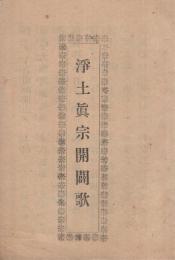 淨土眞宗開闢歌